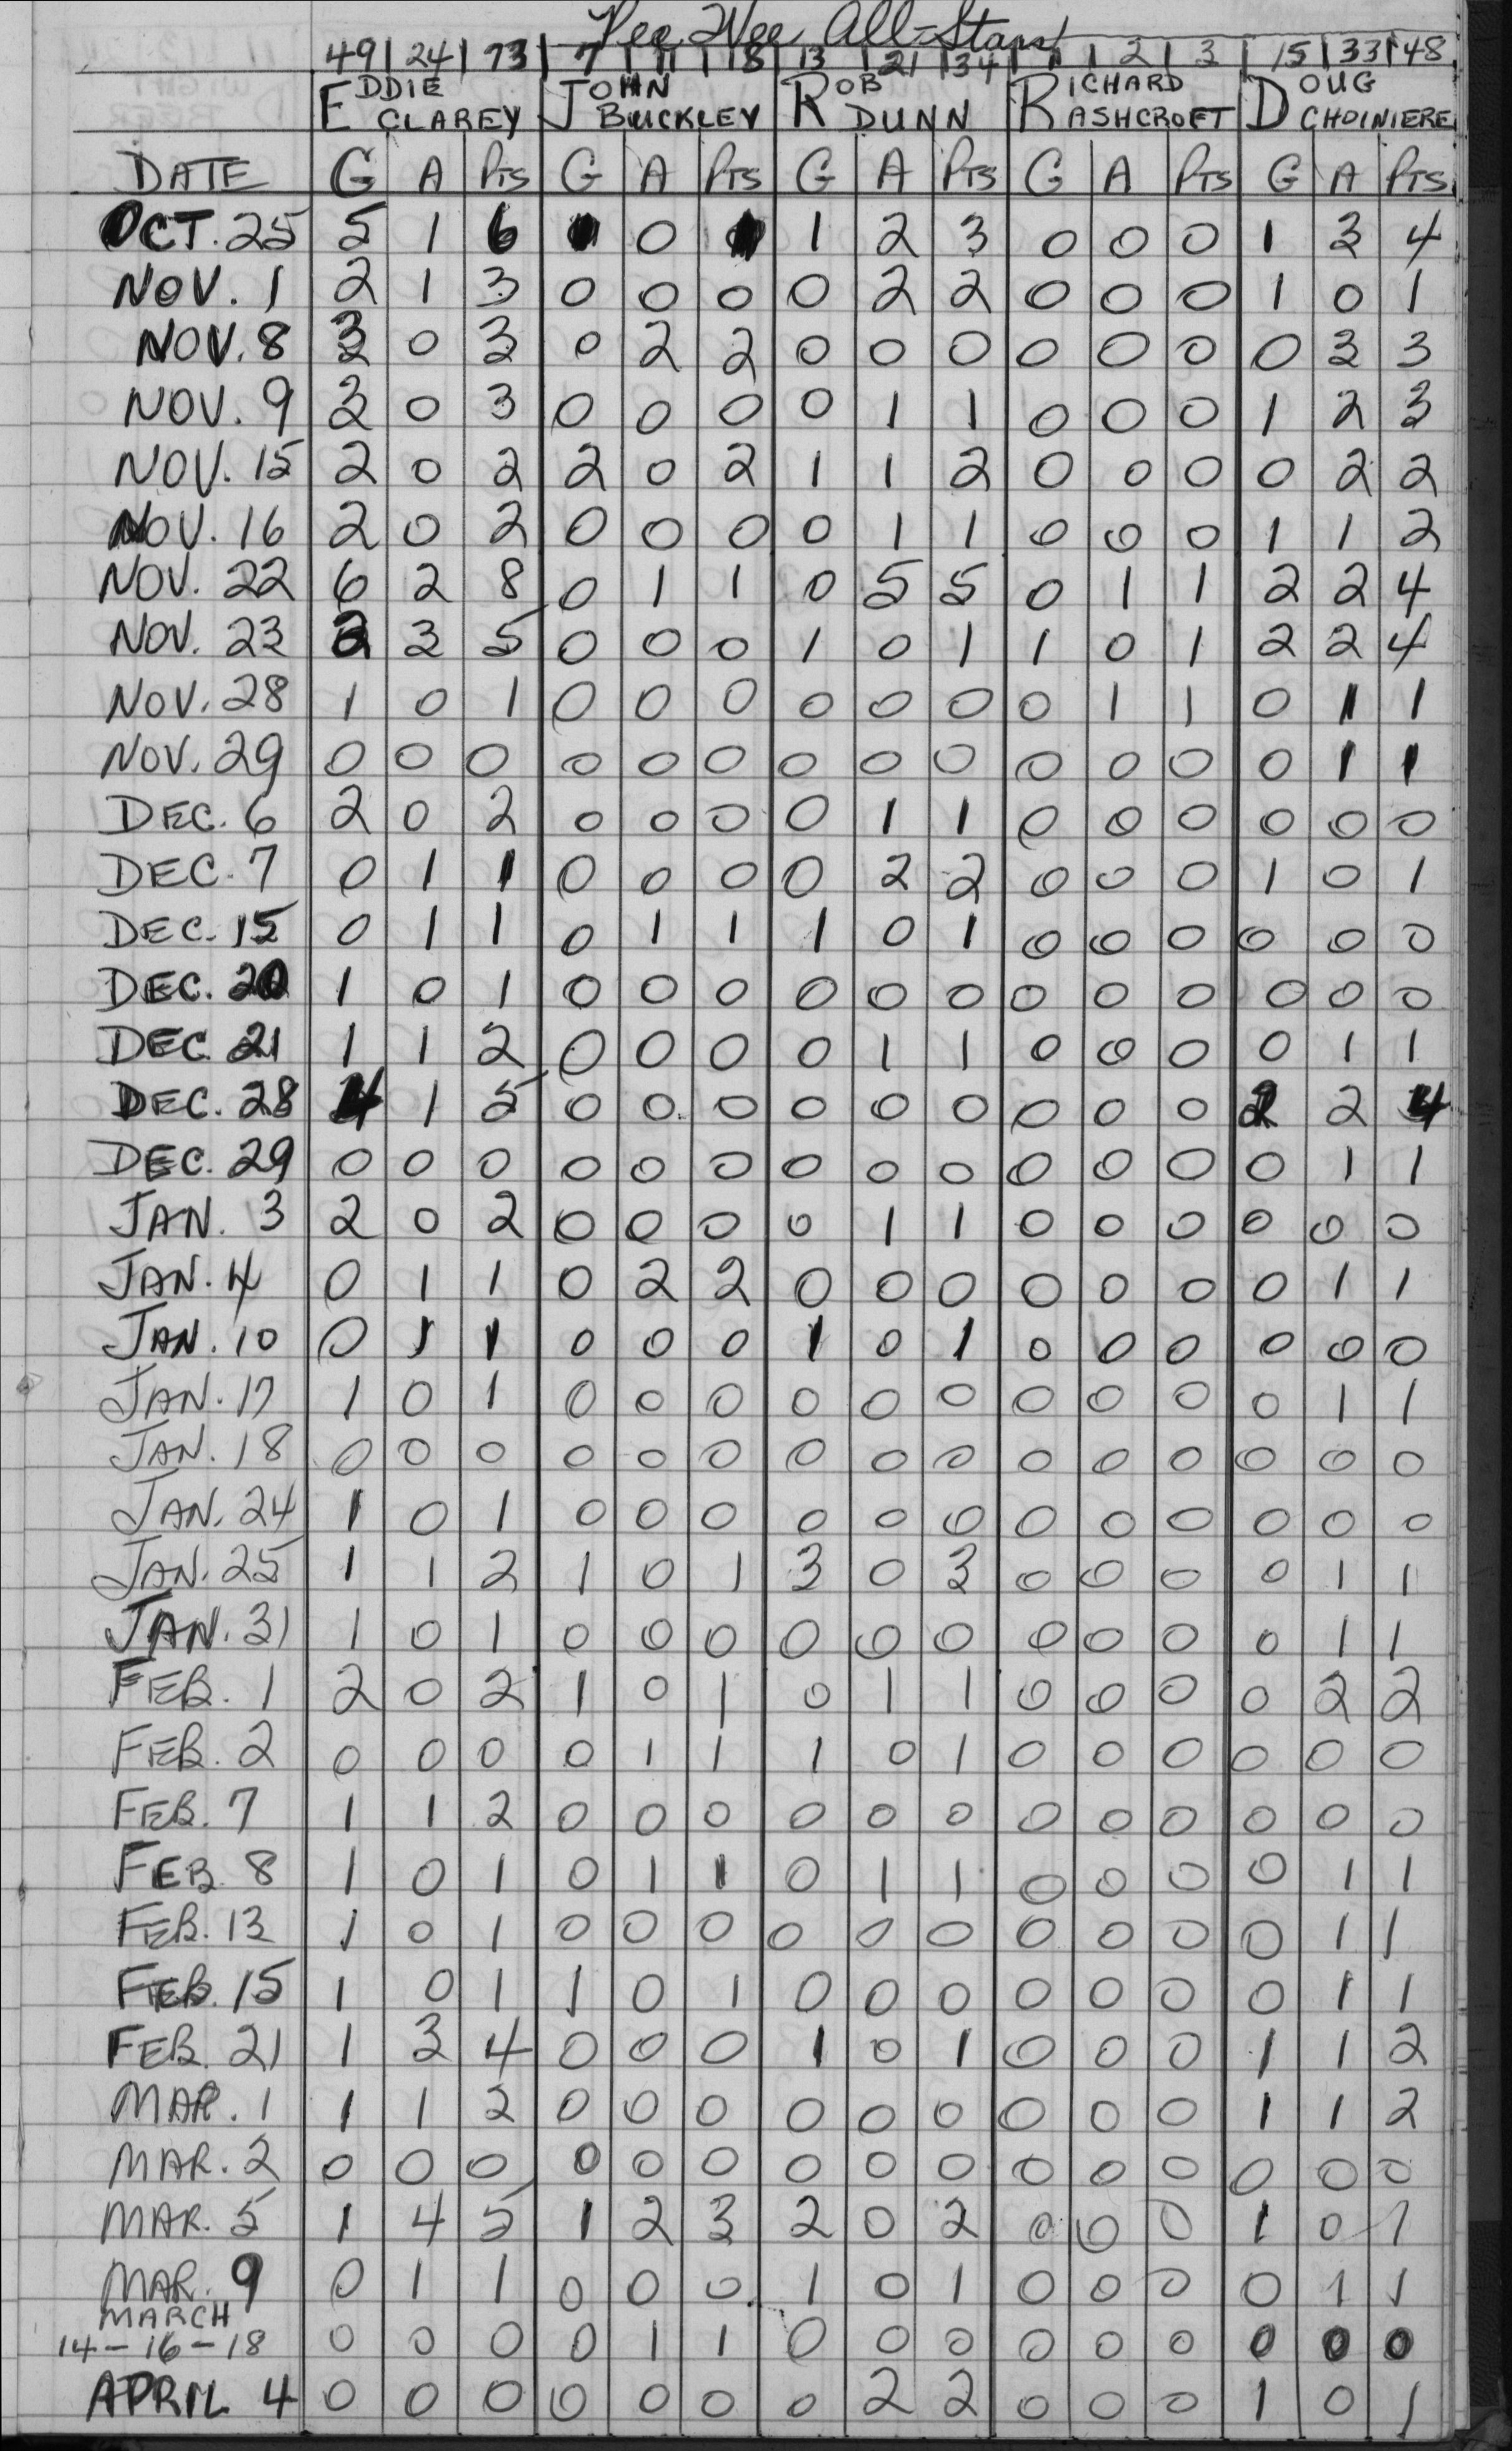 Pee Wee All-Stars
49 24 73 7 11 18 13 21 34 1 2 3 15 33 48
EDDIE CLAREY JOHN BUCKLEY ROB DUNN RICHARD RASHCROFT DOUG CHOINIERE
DATE G A PTS G A PTS G A PTS G A PTS G A PTS
OCT. 25 5 1 6 0 1 2 3 0 0 0 1 3 4
NOV. 1 2 1 3 0 0 0 0 2 2 0 0 0 1 0 1
NOV. 8 3 0 3 0 2 2 0 0 0 0 0 0 0 3 3
NOV. 9 3 0 3 0 0 0 0 1 1 0 0 0 1 2 3
NOV. 15 2 0 2 2 0 2 1 1 2 0 0 0 0 2 2
NOV. 16 2 0 2 0 0 0 0 1 1 0 0 0 1 1 2
NOV. 22 6 2 8 0 1 1 0 5 5 0 1 1 2 2 4
NOV. 23 2 3 5 0 0 0 1 0 1 1 0 1 2 2 4
NOV. 28 1 0 1 0 0 0 0 0 0 0 1 1 0 1 1
NOV. 29 0 0 0 0 0 0 0 0 0 0 0 0 0 1 1
DEC. 6 2 0 2 0 0 0 0 1 1 0 0 0 0 0 0
DEC. 7 0 1 1 0 0 0 0 2 2 0 0 0 1 0 1
DEC. 15 0 1 1 0 1 1 1 0 1 0 0 0 0 0 0
DEC. 20 1 0 1 0 0 0 0 0 0 0 0 0 0 0 0
DEC. 21 1 1 2 0 0 0 0 1 1 0 0 0 0 1 1
DEC. 28 4 1 5 0 0 0 0 0 0 0 0 0 2 2 4
DEC. 29 0 0 0 0 0 0 0 0 0 0 0 0 0 1 1
JAN. 3 2 0 2 0 0 0 0 1 1 0 0 0 0 0 0
JAN. 4 0 1 1 0 2 2 0 0 0 0 0 0 0 1 1
JAN. 10 0 1 1 0 0 0 1 0 1 0 0 0 0 0 0
JAN. 17 1 0 1 0 0 0 0 0 0 0 0 0 0 1 1
JAN. 18 0 0 0 0 0 0 0 0 0 0 0 0 0 0 0
JAN. 24 1 0 1 0 0 0 0 0 0 0 0 0 0 0 0
JAN. 25 1 1 2 1 0 1 3 0 3 0 0 0 0 1 1
JAN. 31 1 0 1 0 0 0 0 0 0 0 0 0 0 1 1
FEB. 1 2 0 2 1 0 1 0 1 1 0 0 0 0 2 2
FEB. 2 0 0 0 0 1 1 1 0 1 0 0 0 0 0 0
FEB. 7 1 1 2 0 0 0 0 0 0 0 0 0 0 0 0
FEB. 8 1 0 1 0 1 1 0 1 1 0 0 0 0 1 1
FEB. 13 1 0 1 0 0 0 0 0 0 0 0 0 0 1 1
FEB. 15 1 0 1 1 0 1 0 0 0 0 0 0 0 1 1
FEB. 21 1 3 4 0 0 0 1 0 1 0 0 0 1 1 2
MAR. 1 1 1 2 0 0 0 0 0 0 0 0 0 1 1 2
MAR. 2 0 0 0 0 0 0 0 0 0 0 0 0 0 0 0
MAR. 5 1 4 5 1 2 3 2 0 2 0 0 0 1 0 1
MAR. 9 0 1 1 0 0 0 1 0 1 0 0 0 0 1 1
MARCH
14-16-18 0 0 0 0 1 1 0 0 0 0 0 0 0 0 0
APRIL 4 0 0 0 0 0 0 0 2 2 0 0 0 1 0 1